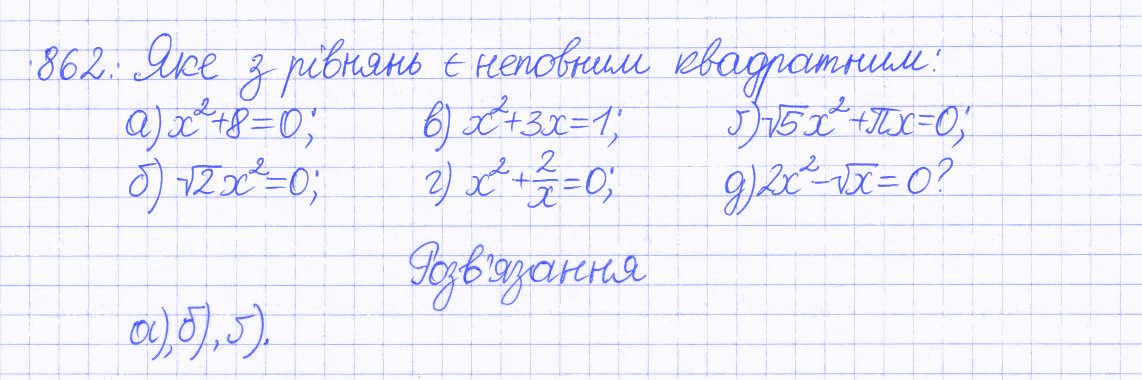 862. Яке з рівнянь є неповним квадратним:
а) x²+8=0; в) x²+3x=1; ґ) √5x²+πx=0;
б) √2x²=0; г) x²+2/x=0; д) 2x²-√x=0?
Розв'язання
а), б), ґ).